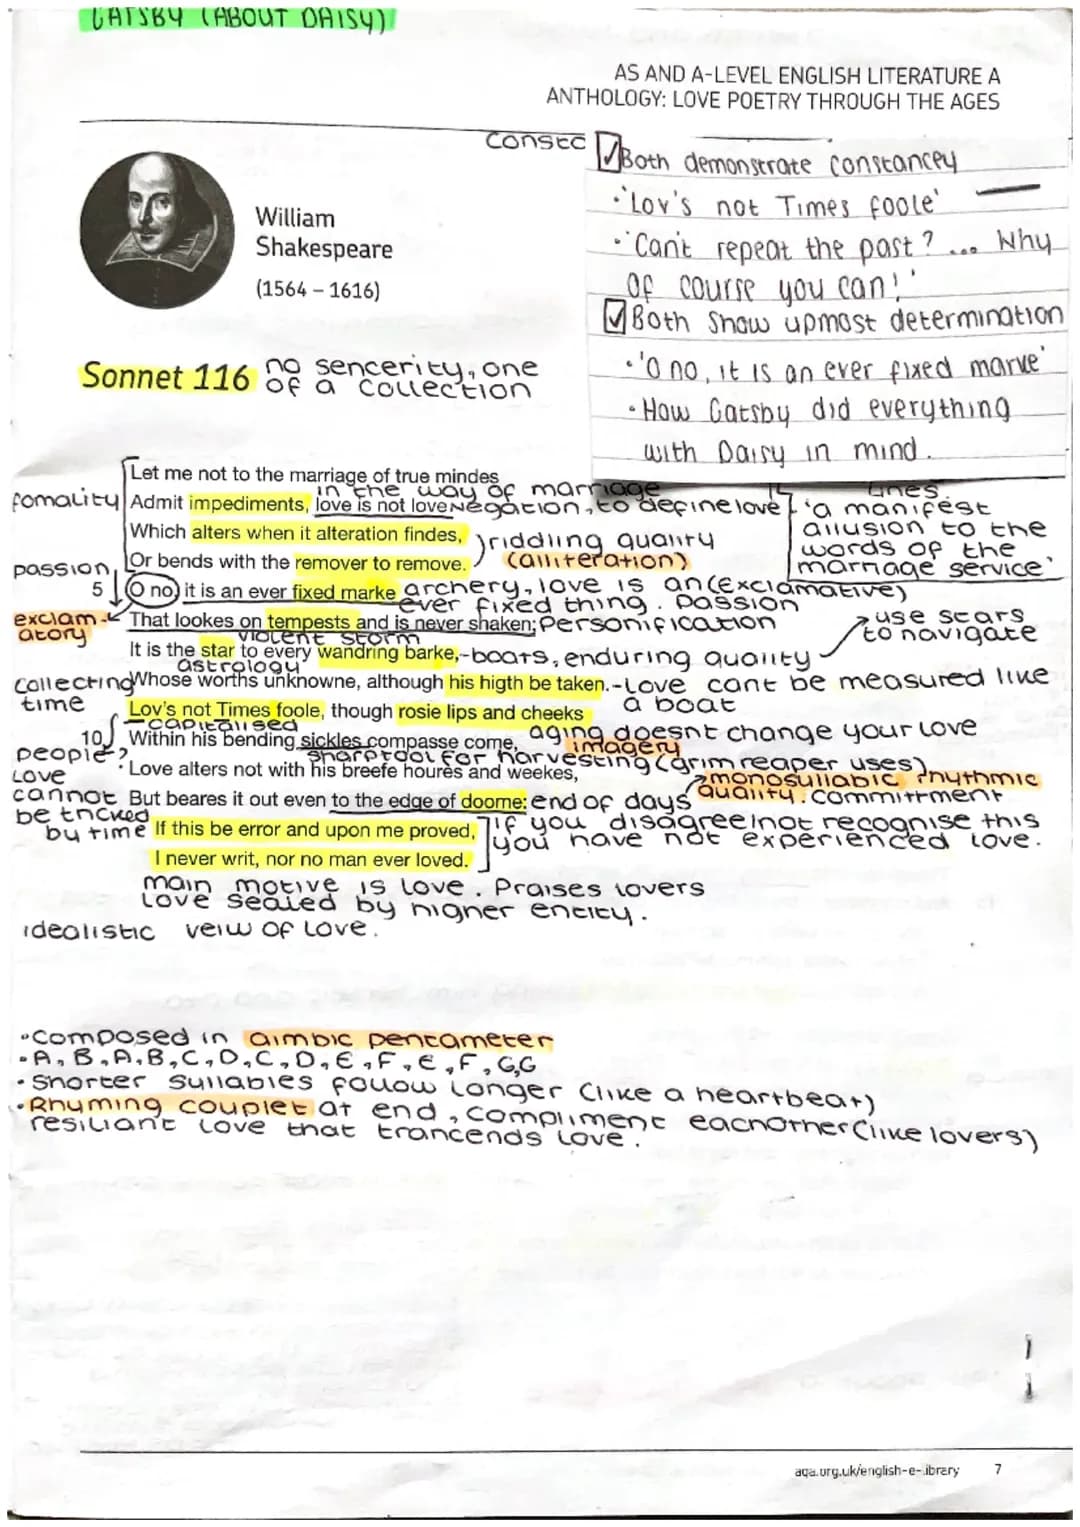 GATSBY (ABOUT DAISY)
AS AND A-LEVEL ENGLISH LITERATURE A
ANTHOLOGY: LOVE POETRY THROUGH THE AGES
Constc
Both demonstrate constancey
• 'Lov's not Times foole'
• 'Can't repeat the past? ... Why
of course you can!'
Both show upmost determination
• 'O no, it is an ever fixed marke'
• How Gatsby did everything
with Daisy in mind.
William
Shakespeare
(1564 – 1616)
Sonnet 116
no sencerity, one
of a collection
Let me not to the marriage of true mindes
in the way of marriage
fomality
Admit impediments, love is not love
Negation, to define love
lines.
'a manifest
allusion to the
words of the
marriage service'
Which alters when it alteration findes,
riddling quality
(alliteration)
Or bends with the remover to remove.
passion
5
O no, it is an ever fixed marke
archery, love is an (exclamative)
ever fixed thing. Passion
exclam-
atory
That lookes on tempests and is never shaken;
Personification
violent storm
use stars
to navigate
It is the star to every wandring barke,
-boats, enduring quality
astrology
Whose worths unknowne, although his higth be taken.
-Love cant be measured like
a boat
Collecting
time
Lov's not Times foole, though rosie lips and cheeks
capitalised
aging doesnt change your love
10
Within his bending sickles compasse come,
imagery
sharp tool for harvesting (grim reaper uses)
people?
Love alters not with his breefe houres and weekes,
monosyllabic rhythmic
quality. commitment
Love
cannot
be tricked
by time
But beares it out even to the edge of doome:
end of days
If this be error and upon me proved,
if you disagree/not recognise this
you have not experienced love.
I never writ, nor no man ever loved.
main motive is love. Praises lovers
Love sealed by higher entity.
idealistic veiw of love.
• Composed in aimbic pentameter
• A, B, A, B, C, D, C, D, E, F, E, F, G, G
• Shorter syllables follow longer (like a heartbeat)
• Rhyming couplet at end, compliment eachother (like lovers)
resiliant love that trancends love.
aqa.org.uk/english-e-library
7